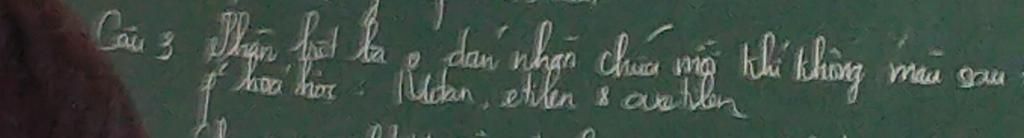 Câu 3 Phân biệt ba lọ dán nhãn chứa mỗi khí không màu sau
p² hoá học : Metan, etilen & axetilen